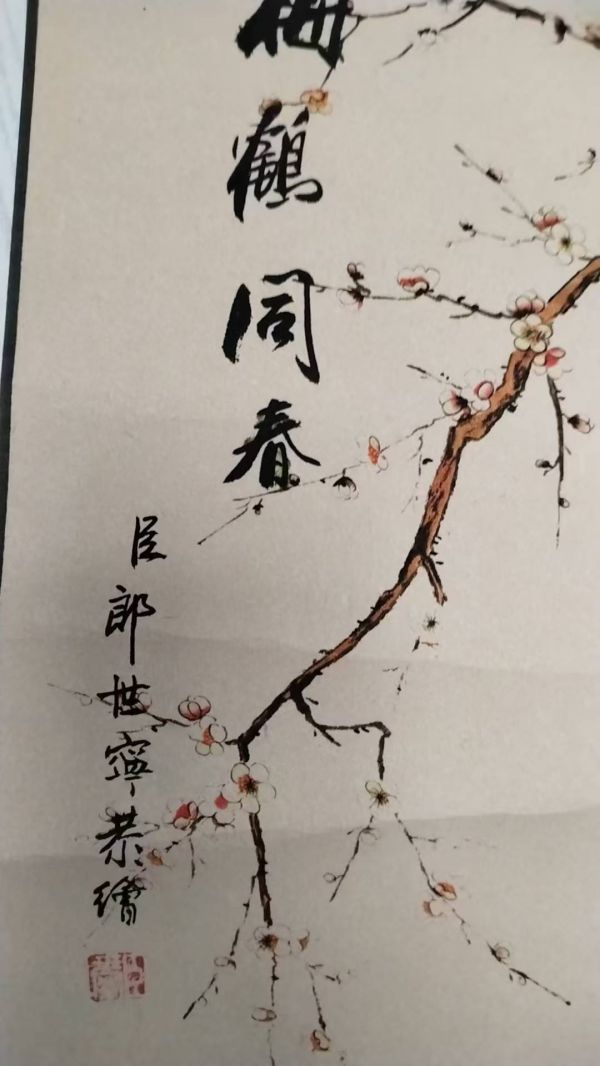 梅鶴同春
臣郎世寧恭繪